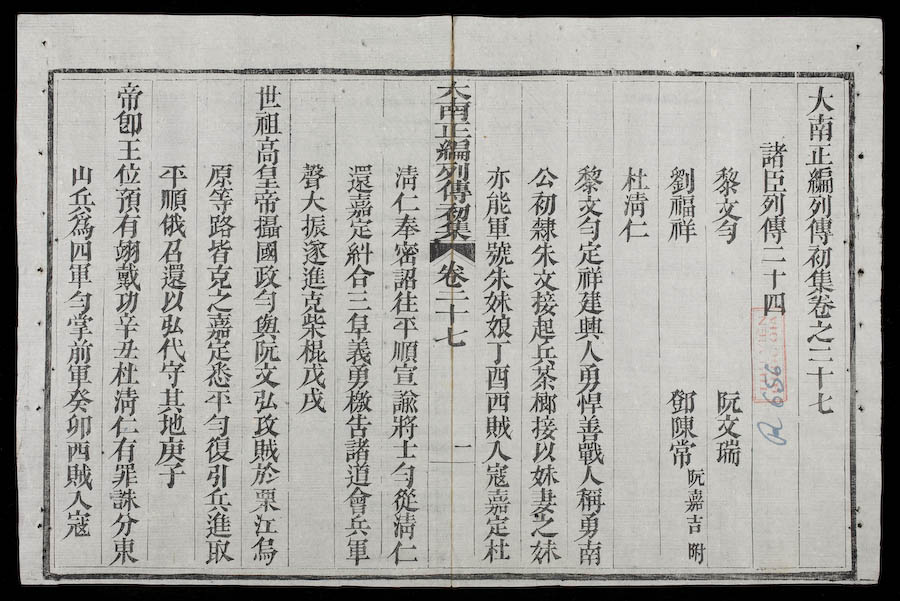 大南正編列傳初集卷之二十七
諸臣列傳二十四
黎文勻　阮文瑞
劉福祥　鄧陳常 阮嘉吉附
杜淸仁
黎文勻定祥建興人勇悍善戰人稱勇南
公初隷朱文接起兵茶榔接以妹妻之妹
亦能軍號朱妹娘丁酉西賊入寇嘉定杜
大南正編列傳初集 卷二十七 一
淸仁奉密詔往平順宣諭將士勻從淸仁
還嘉定糾合三阜義勇檄告諸道會兵軍
聲大振遂進克柴棍戊戌
世祖高皇帝攝國政勻與阮文弘攻賊於栗江烏
原等路皆克之嘉定悉平勻復引兵進取
平順俄召還以弘代守其地庚子
帝卽王位預有翊戴功辛丑杜淸仁有罪誅分東
山兵爲四軍勻掌前軍癸卯西賊入寇
R 656